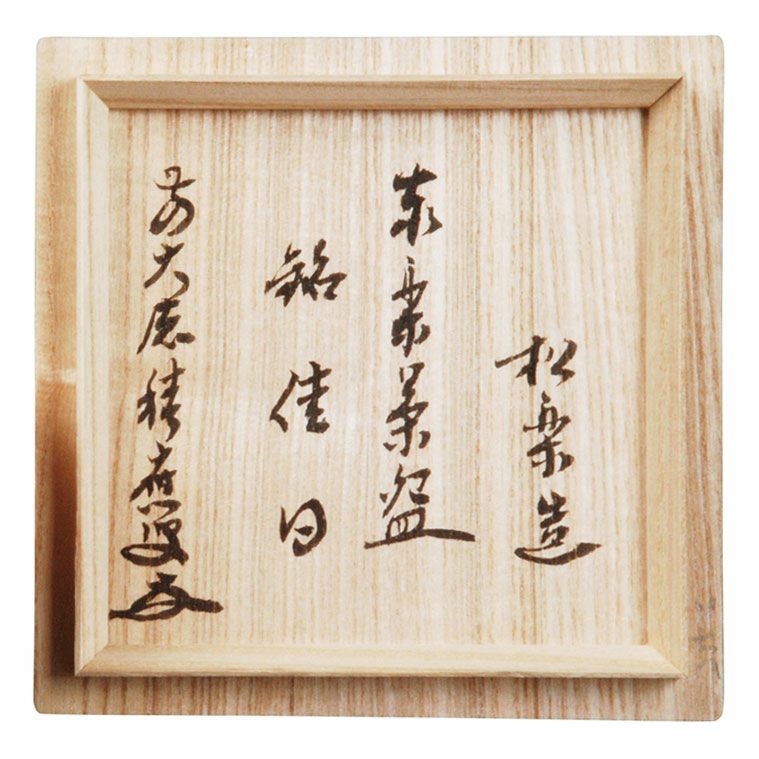 松楽造
赤楽茶盌
銘佳日
前大徳積應叟